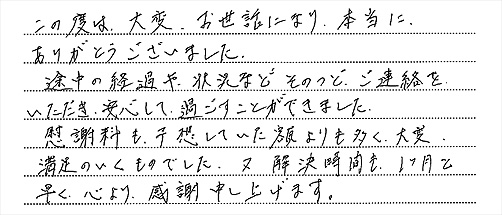 この度は、大変、お世話になり、本当に、
ありがとうございました。
途中の経過や、状況など そのつど、ご連絡を、
いただき、安心して、過ごすことができました。
慰謝料も、予想していた額よりも多く、大変、
満足のいくものでした。又 解決時間も、1ヶ月と
早く、心より、感謝申し上げます。